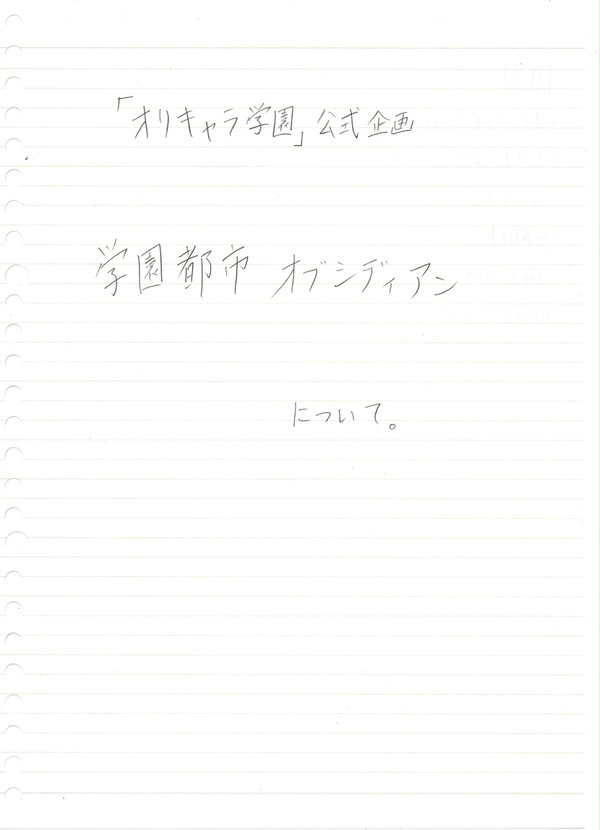 「オリキャラ学園」公式企画
学園都市 オブシディアン
について。